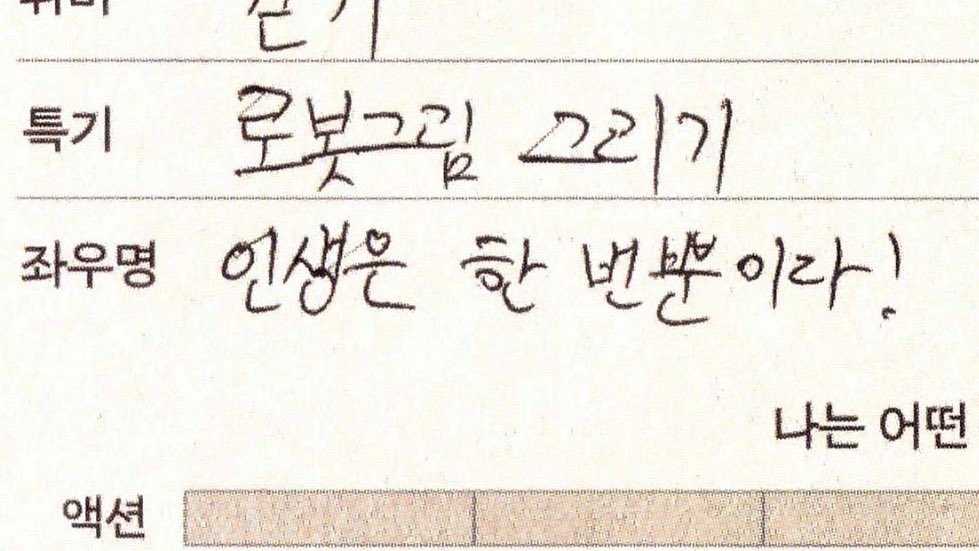 취미 걷기
특기 로봇그림 그리기
좌우명 인생은 한 번뿐이라!
나는 어떤
액션